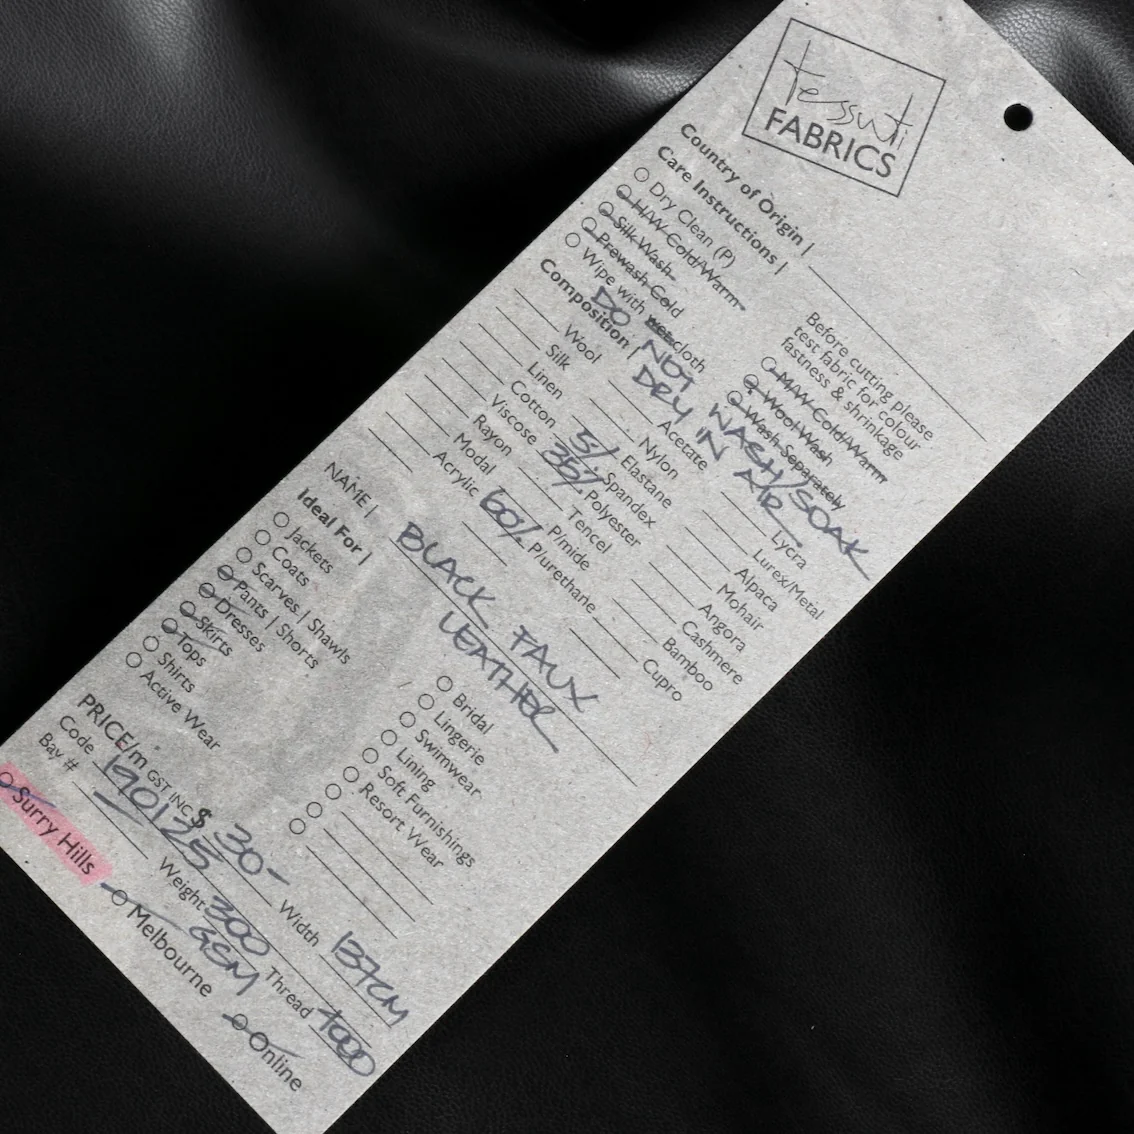 tessuti
FABRICS
Country of Origin |
Care Instructions |
Dry Clean (P)
H/W Cold/Warm
Silk Wash
Prewash Cold
Wipe with wet cloth
Before cutting please
test fabric for colour
fastness & shrinkage
M/W Cold/Warm
Wool Wash
Wash Separately
DO NOT WASH/SOAK
DRY IN AIR
Composition |
Wool
Silk
Linen
Cotton
Viscose
Rayon
Modal
Acrylic
Acetate
Nylon
5% Elastane
Spandex
35% Polyester
Tencel
P/mide
60% P/urethane
Lycra
Lurex/Metal
Alpaca
Mohair
Angora
Cashmere
Bamboo
Cupro
NAME | BLACK FAUX
LEATHER
Ideal For |
Jackets
Coats
Scarves | Shawls
Pants | Shorts
Dresses
Skirts
Tops
Shirts
Active Wear
Bridal
Lingerie
Swimwear
Lining
Soft Furnishings
Resort Wear
PRICE/m GST INC $ 30- Width 137CM
Code 190125 Weight 300 GSM Thread 1000
Bay #
Surry Hills
Melbourne
Online